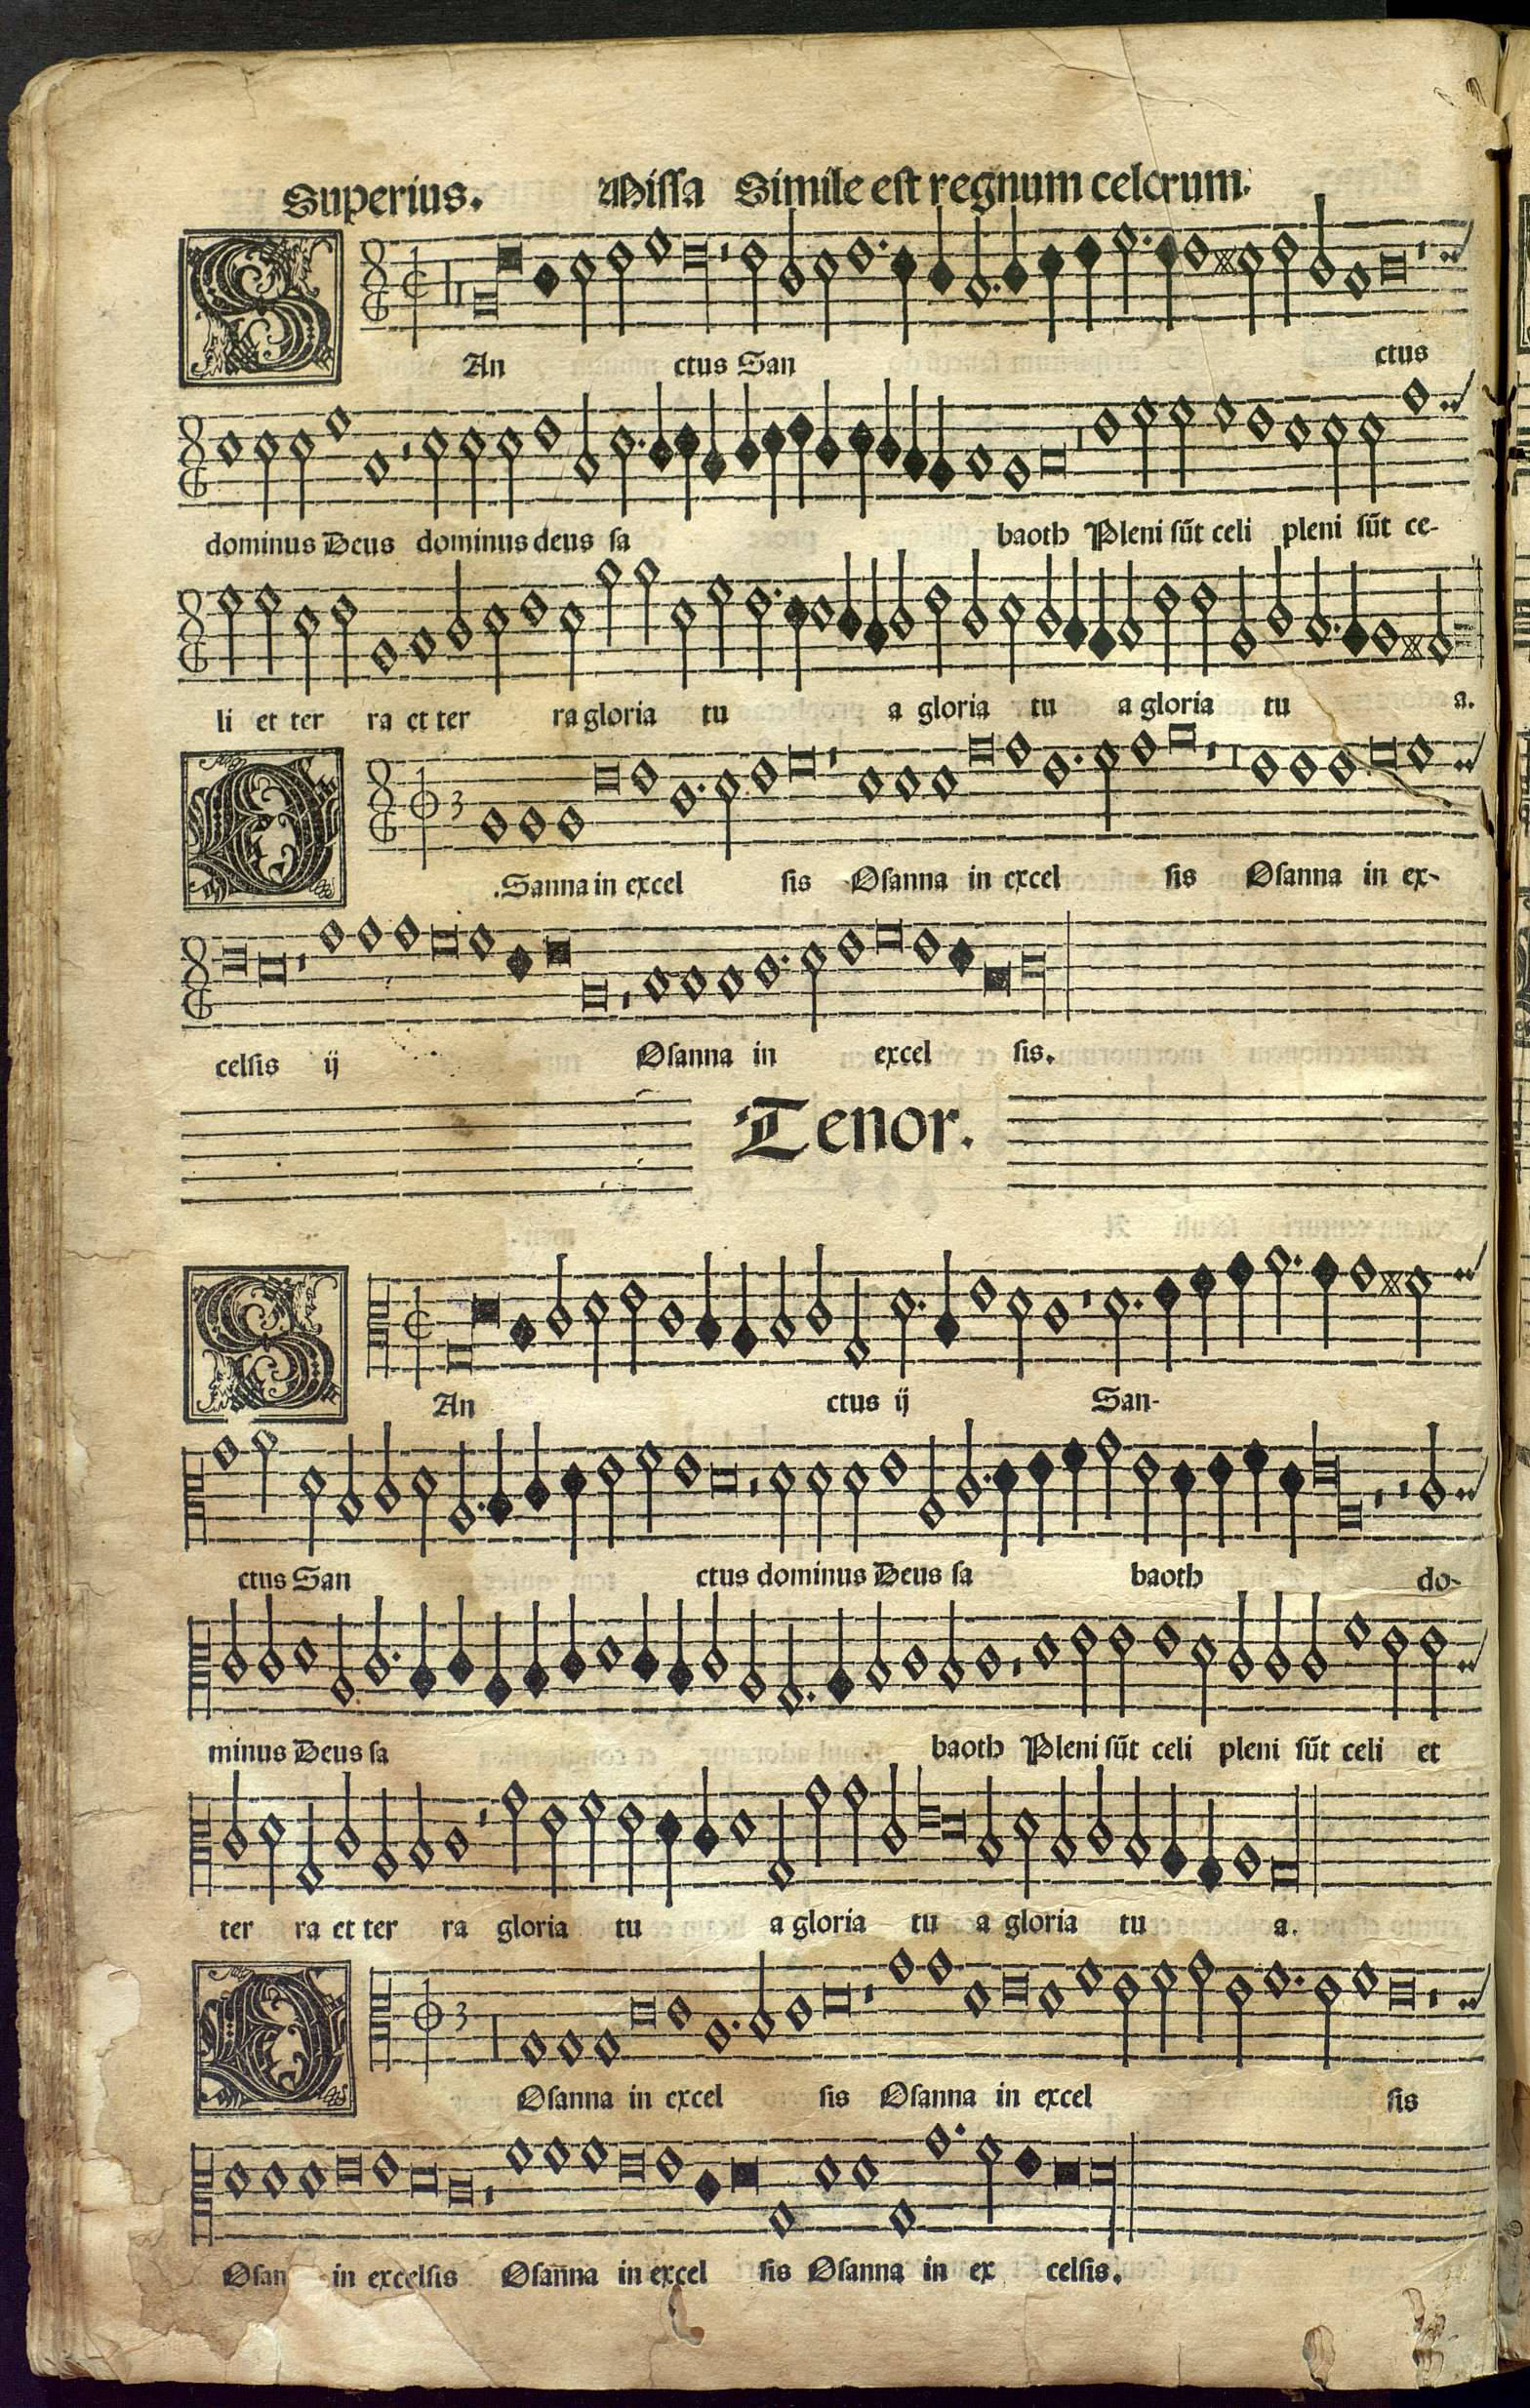 Superius. Missa Simile est regnum celorum.
S An ctus San ctus
dominus Deus dominus deus sa baoth Pleni sūt celi pleni sūt ce-
li et ter ra et ter ra gloria tu a gloria tu a gloria tu a.
O .Sanna in excel sis Osanna in excel sis Osanna in ex-
celsis ij Osanna in excel sis.
Tenor.
S An ctus ij San-
ctus San ctus dominus Deus sa baoth do-
minus Deus sa baoth Pleni sūt celi pleni sūt celi et
ter ra et ter ra gloria tu a gloria tu a gloria tu a.
O Osanna in excel sis Osanna in excel sis
Osan in excelsis Osanna in excel sis Osanna in ex celsis.